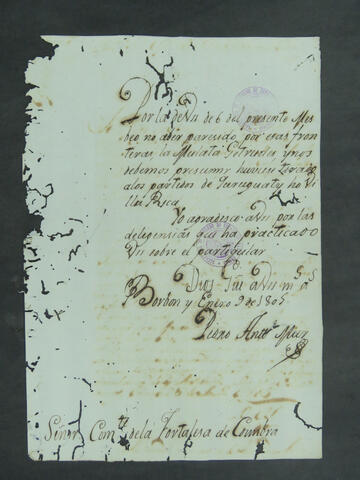 Por la de Vm de 6 del presente Mes
veo no aber paresido, por esas fron
teras, la Mulata y nos
debemos presumir
alos partidos de Yaraguatỹ, ho Vi
lla Rica
Yo agradesco a Vm por las
deligensias que ha practicado
Vm sobre el particular
Dios Gũe a Vm m.s a.s
Borbon y Enero 9 de 1805
Pedro Ant.o Mier
Señor Com.te de la Fortalesa de Coimbra